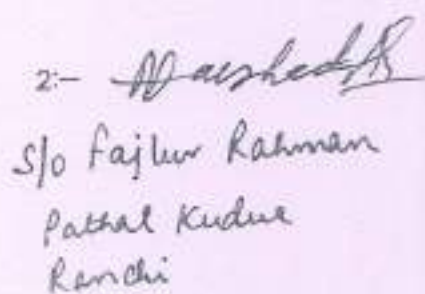 2:- Naushad
S/o Fajlur Rahman
Pathal Kudua
Ranchi